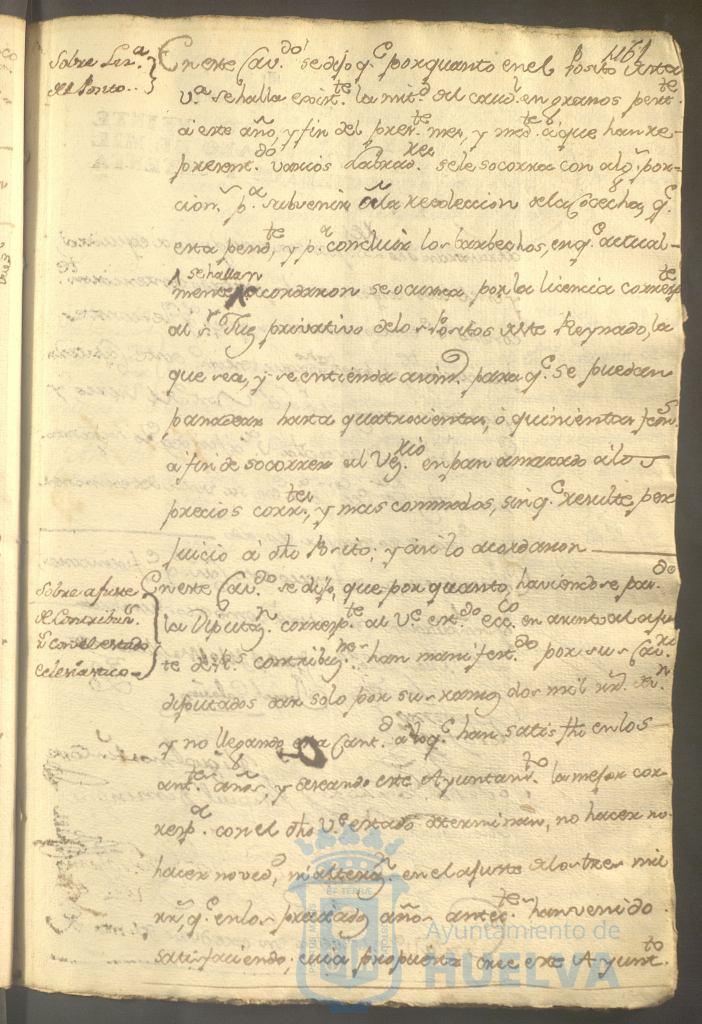 1161
Sobre Liz.ª
del Posito..
En este Cav.do se dijo q.e por quanto en el Posito desta
v.ª se halla exist.te la mit.d del caud.l en granos pert.te
a este año, y fin del pres.te mes, y med.te a que han re-
present.do varios Labrad.res se le socorra con alg.ª por-
cion.n p.ª subvenir a la recoleccion de la Cosecha, q.e
esta pend.te y p.ª concluir los barbechos, en q.e actual-
se hallan
mente acordaron se ocurra por la licencia corresp.te
al s.r Juez privativo de los Positos deste Reynado, la
que sea, y se entienda asim.o para q.e se puedan
panadear hasta quatrocientas, ó quinientas fan.s
a fin de socorrer al Vez.rio en pan amasado a los
precios corr.tes, y mas commodos, sin q.e resulte per
juicio a dho Posito; y asi lo acordaron
Sobre ajuste
de Contribuz.n
con el estado
eclesiastico
En este Cav.do se dijo, que por quanto, haviendose pas.do
la Diputaz.n corresp.te al V.e est.do ecc.co en asunto al ajus
te de contribuz.nes han manifest.do por sus Cav.ros
diputados dar solo por su ramo dos mil rr.s de v.n
y no llegando esta Cant.d a lo q.e han satisfho en los
ant.tes años, y deseando este Ayuntam.to la mejor cor-
resp.ª con el dho V.e estado determinan, no hacer no
hacer noved.d, ni alteraz.n en el ajuste de los tres mil
rr.s, q.e en los practicados años antec.tes han venido
satisfaciendo, cuia propuesta cree este Ayunt.to
Ayuntamiento de
HUELVA